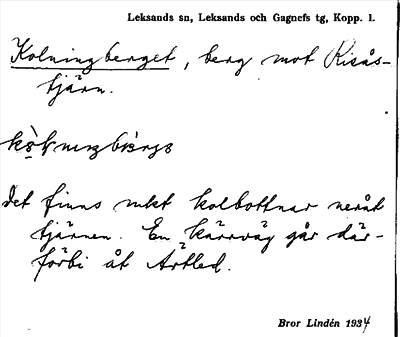 Leksands sn, Leksands och Gagnefs tg, Kopp. l.
Kolningberget, berg mot Risås-
tjärn.
Det finns mkt kolbottnar neråt
tjärnen. En kärrväg går där-
förbi åt Artled.
Bror Lindén 1934